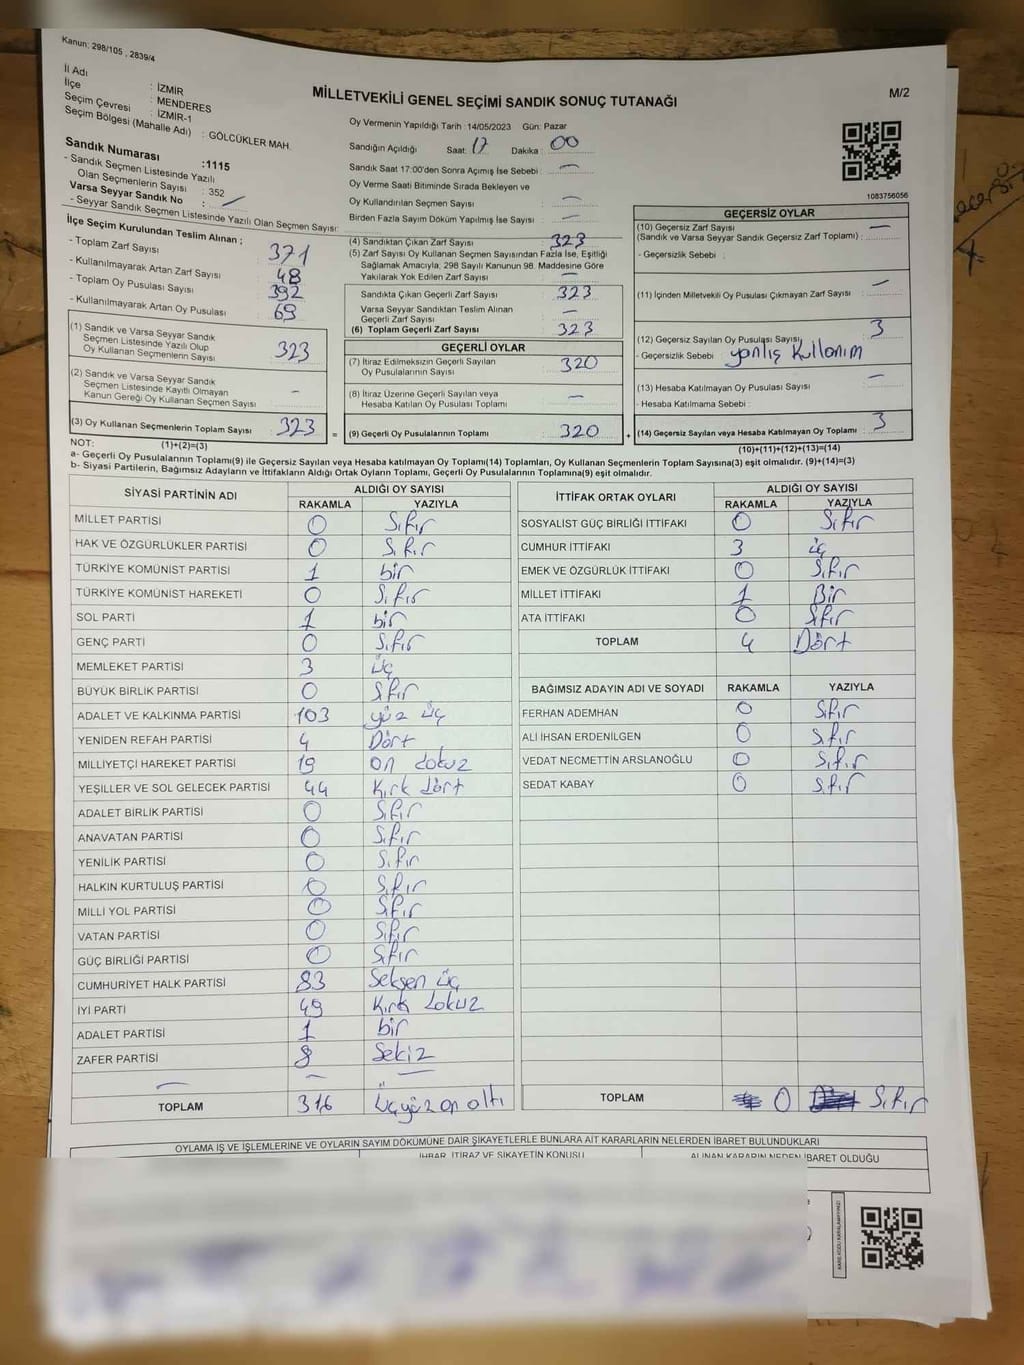 Kanun: 298/105 , 2839/4
İl Adı : İZMİR
İlçe : MENDERES
Seçim Çevresi : İZMİR-1
Seçim Bölgesi (Mahalle Adı) : GÖLCÜKLER MAH.
MİLLETVEKİLİ GENEL SEÇİMİ SANDIK SONUÇ TUTANAĞI
M/2
Oy Vermenin Yapıldığı Tarih : 14/05/2023 Gün: Pazar
Sandığın Açıldığı Saat: 17 Dakika: 00
Sandık Saat 17:00'den Sonra Açılmış İse Sebebi : —
Oy Verme Saati Bitiminde Sırada Bekleyen ve
Oy Kullandırılan Seçmen Sayısı : —
Birden Fazla Sayım Döküm Yapılmış İse Sayısı : —
1083756056
Sandık Numarası :1115
- Sandık Seçmen Listesinde Yazılı
Olan Seçmenlerin Sayısı : 352
Varsa Seyyar Sandık No : —
- Seyyar Sandık Seçmen Listesinde Yazılı Olan Seçmen Sayısı:
İlçe Seçim Kurulundan Teslim Alınan ;
- Toplam Zarf Sayısı : 371
- Kullanılmayarak Artan Zarf Sayısı : 48
- Toplam Oy Pusulası Sayısı : 392
- Kullanılmayarak Artan Oy Pusulası : 69
(1) Sandık ve Varsa Seyyar Sandık
Seçmen Listesinde Yazılı Olup
Oy Kullanan Seçmenlerin Sayısı : 323
(2) Sandık ve Varsa Seyyar Sandık
Seçmen Listesinde Kayıtlı Olmayan
Kanun Gereği Oy Kullanan Seçmen Sayısı : —
(3) Oy Kullanan Seçmenlerin Toplam Sayısı : 323
(1)+(2)=(3)
(4) Sandıktan Çıkan Zarf Sayısı : 323
(5) Zarf Sayısı Oy Kullanan Seçmen Sayısından Fazla İse, Eşitliği
Sağlamak Amacıyla, 298 Sayılı Kanunun 98. Maddesine Göre
Yakılarak Yok Edilen Zarf Sayısı : —
Sandıkta Çıkan Geçerli Zarf Sayısı : 323
Varsa Seyyar Sandıktan Teslim Alınan
Geçerli Zarf Sayısı : —
(6) Toplam Geçerli Zarf Sayısı : 323
GEÇERLİ OYLAR
(7) İtiraz Edilmeksizin Geçerli Sayılan
Oy Pusulalarının Sayısı : 320
(8) İtiraz Üzerine Geçerli Sayılan veya
Hesaba Katılan Oy Pusulası Toplamı : —
= (9) Geçerli Oy Pusulalarının Toplamı : 320
GEÇERSİZ OYLAR
(10) Geçersiz Zarf Sayısı : —
(Sandık ve Varsa Seyyar Sandık Geçersiz Zarf Toplamı) :
- Geçersizlik Sebebi :
(11) İçinden Milletvekili Oy Pusulası Çıkmayan Zarf Sayısı : —
(12) Geçersiz Sayılan Oy Pusulası Sayısı : 3
- Geçersizlik Sebebi : yanlış kullanım
(13) Hesaba Katılmayan Oy Pusulası Sayısı : —
- Hesaba Katılmama Sebebi :
+ (14) Geçersiz Sayılan veya Hesaba Katılmayan Oy Toplamı : 3
(10)+(11)+(12)+(13)=(14)
NOT:
a- Geçerli Oy Pusulalarının Toplamı(9) ile Geçersiz Sayılan veya Hesaba katılmayan Oy Toplamı(14) Toplamları, Oy Kullanan Seçmenlerin Toplam Sayısına(3) eşit olmalıdır. (9)+(14)=(3)
b- Siyasi Partilerin, Bağımsız Adayların ve İttifakların Aldığı Ortak Oyların Toplamı, Geçerli Oy Pusulalarının Toplamına(9) eşit olmalıdır.
SİYASİ PARTİNİN ADI ALDIĞI OY SAYISI
RAKAMLA YAZIYLA
MİLLET PARTİSİ 0 Sıfır
HAK VE ÖZGÜRLÜKLER PARTİSİ 0 Sıfır
TÜRKİYE KOMÜNİST PARTİSİ 1 bir
TÜRKİYE KOMÜNİST HAREKETİ 0 Sıfır
SOL PARTİ 1 bir
GENÇ PARTİ 0 Sıfır
MEMLEKET PARTİSİ 3 üç
BÜYÜK BİRLİK PARTİSİ 0 Sıfır
ADALET VE KALKINMA PARTİSİ 103 yüz üç
YENİDEN REFAH PARTİSİ 4 Dört
MİLLİYETÇİ HAREKET PARTİSİ 19 on dokuz
YEŞİLLER VE SOL GELECEK PARTİSİ 44 Kırk dört
ADALET BİRLİK PARTİSİ 0 Sıfır
ANAVATAN PARTİSİ 0 Sıfır
YENİLİK PARTİSİ 0 Sıfır
HALKIN KURTULUŞ PARTİSİ 0 Sıfır
MİLLİ YOL PARTİSİ 0 Sıfır
VATAN PARTİSİ 0 Sıfır
GÜÇ BİRLİĞİ PARTİSİ 0 Sıfır
CUMHURİYET HALK PARTİSİ 83 Seksen üç
İYİ PARTİ 49 Kırk dokuz
ADALET PARTİSİ 1 bir
ZAFER PARTİSİ 8 Sekiz
— — —
TOPLAM 316 Üçyüz on altı
İTTİFAK ORTAK OYLARI ALDIĞI OY SAYISI
RAKAMLA YAZIYLA
SOSYALİST GÜÇ BİRLİĞİ İTTİFAKI 0 Sıfır
CUMHUR İTTİFAKI 3 üç
EMEK VE ÖZGÜRLÜK İTTİFAKI 0 Sıfır
MİLLET İTTİFAKI 1 Bir
ATA İTTİFAKI 0 Sıfır
TOPLAM 4 Dört
BAĞIMSIZ ADAYIN ADI VE SOYADI RAKAMLA YAZIYLA
FERHAN ADEMHAN 0 Sıfır
ALİ İHSAN ERDENİLGEN 0 Sıfır
VEDAT NECMETTİN ARSLANOĞLU 0 Sıfır
SEDAT KABAY 0 Sıfır
TOPLAM 0 Sıfır
OYLAMA İŞ VE İŞLEMLERİNE VE OYLARIN SAYIM DÖKÜMÜNE DAİR ŞİKAYETLERLE BUNLARA AİT KARARLARIN NELERDEN İBARET BULUNDUKLARI
İHBAR, İTİRAZ VE ŞİKAYETİN KONUSU ALINAN KARARIN NEDEN İBARET OLDUĞU